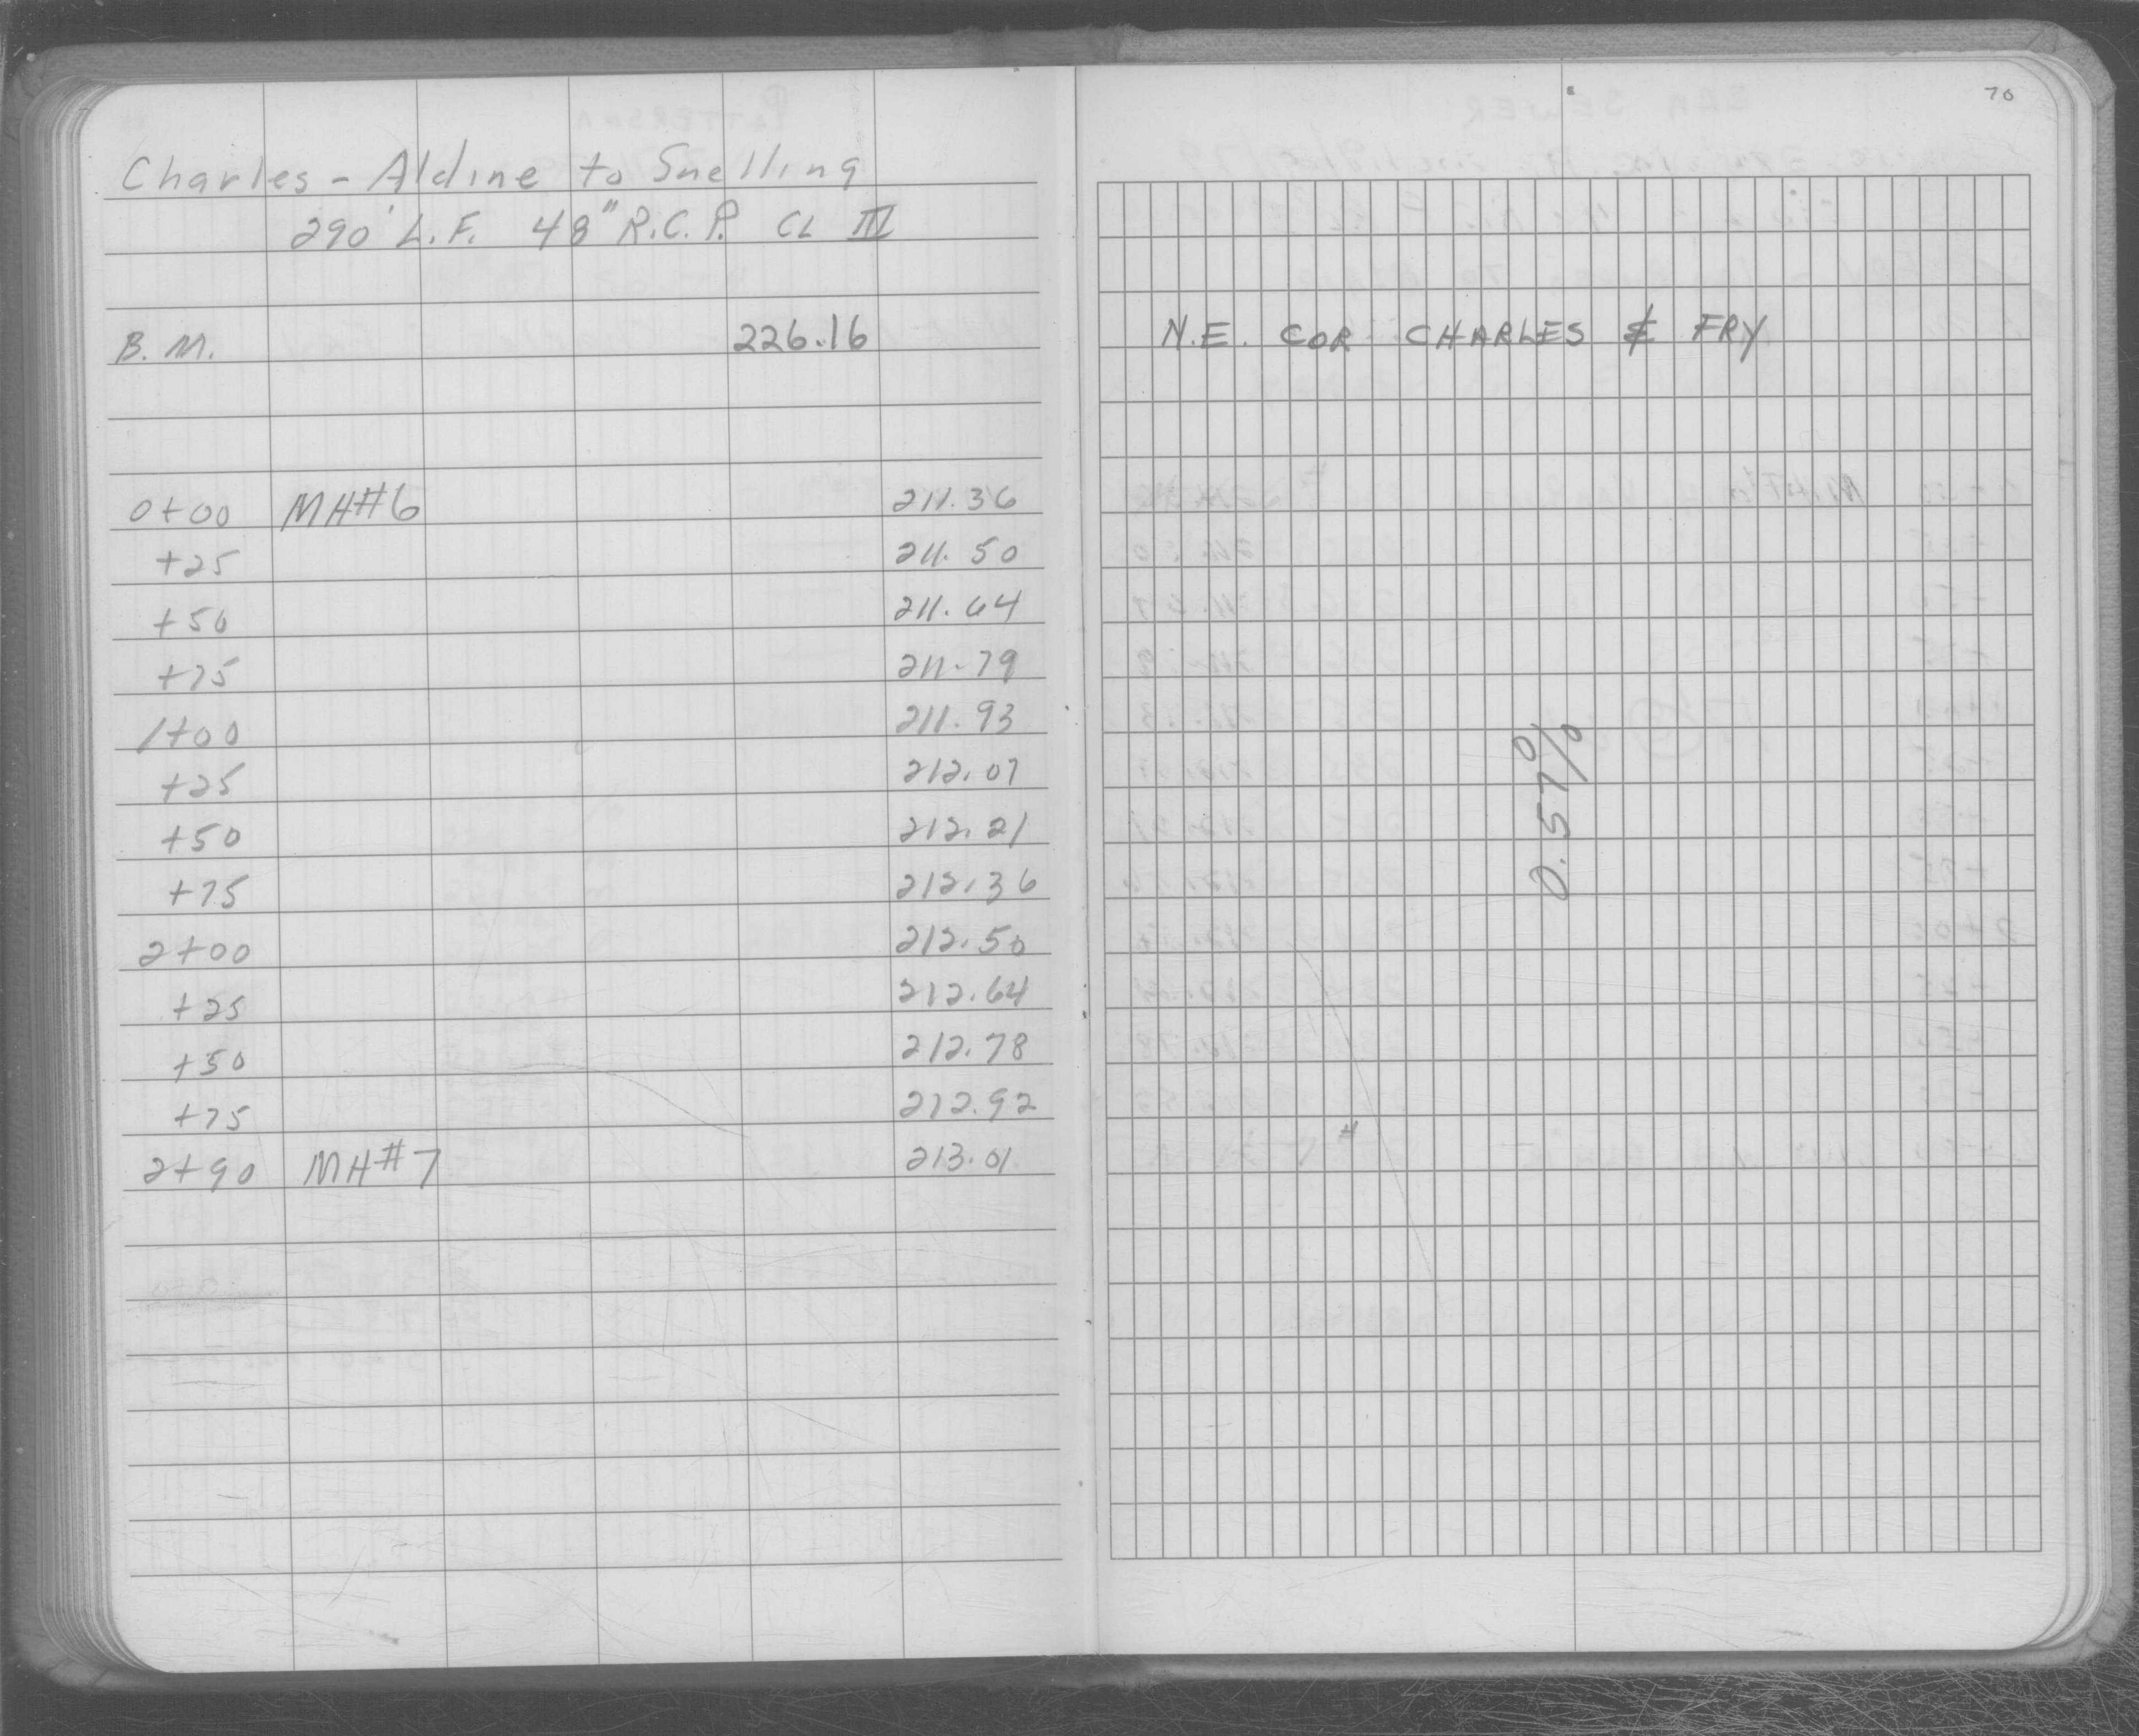 70
Charles - Aldine to Snelling
290' L.F. 48" R.C.P. CL III
B.M. 226.16 N.E. COR CHARLES & FRY
0+00 MH#6 211.36
+25 211.50
+50 211.64
+75 211.79
1+00 211.93
+25 212.07
+50 212.21
+75 212.36
2+00 212.50
+25 212.64
+50 212.78
+75 212.92
2+90 MH#7 213.01
0.57%